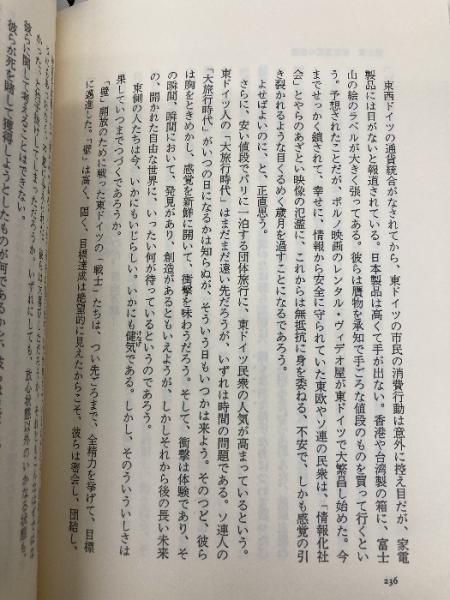 東西ドイツの通貨統合がなされてから、東ドイツの市民の消費行動は意外に控え目だが、家電
製品には目がないと報道されている。日本製品は高くて手が出ない。香港や台湾製の箱に、富士
山の絵のラベルが大きく張ってある。彼らは贋物を承知で手ごろな値段のものを買って行くとい
う。予想されたことだが、ポルノ映画のレンタル・ヴィデオ屋が東ドイツで大繁昌し始めた。今
までせっかく鎖されて、幸せに、情報から安全に守られていた東欧やソ連の民衆は、「情報化社
会」とやらのあざとい映像の氾濫に、これからは無抵抗に身を委ねる、不安で、しかも感覚の引
き裂かれるような目くるめく歳月を過すことになるであろう。
よせばよいのに、と、正直思う。
さらに、安い値段でパリに一泊する団体旅行に、東ドイツ民衆の人気が高まっているという。
東ドイツ人の「大旅行時代」はまだまだ遠い先だろうが、いずれは時間の問題である。ソ連人の
「大旅行時代」がいつの日になるかは知らぬが、そういう日もいつかは来よう。そのつど、彼ら
は胸をときめかし、感覚を新鮮に開いて、衝撃を味わうだろう。そして、衝撃は体験であり、そ
の瞬間、瞬間において、発見があり、創造があるともいえようが、しかしそれから後の長い未来
の、開かれた自由な世界に、いったい何が待っているというのであろう。
東側の人たちは今、いかにもいじらしい。いかにも健気である。しかし、そのういういしさは
果していつまでつづくであろうか。
「壁」開放のために戦った東ドイツの「戦士」たちは、つい先ごろまで、全精力を挙げて、目標
に邁進した。「壁」は高く、固く、目標達成は絶望的に見えたからこそ、彼らは密会し、団結し、
彼らに関して考えることはできない。
彼らが死を賭して獲得しようとしたものが何であるかと、
236